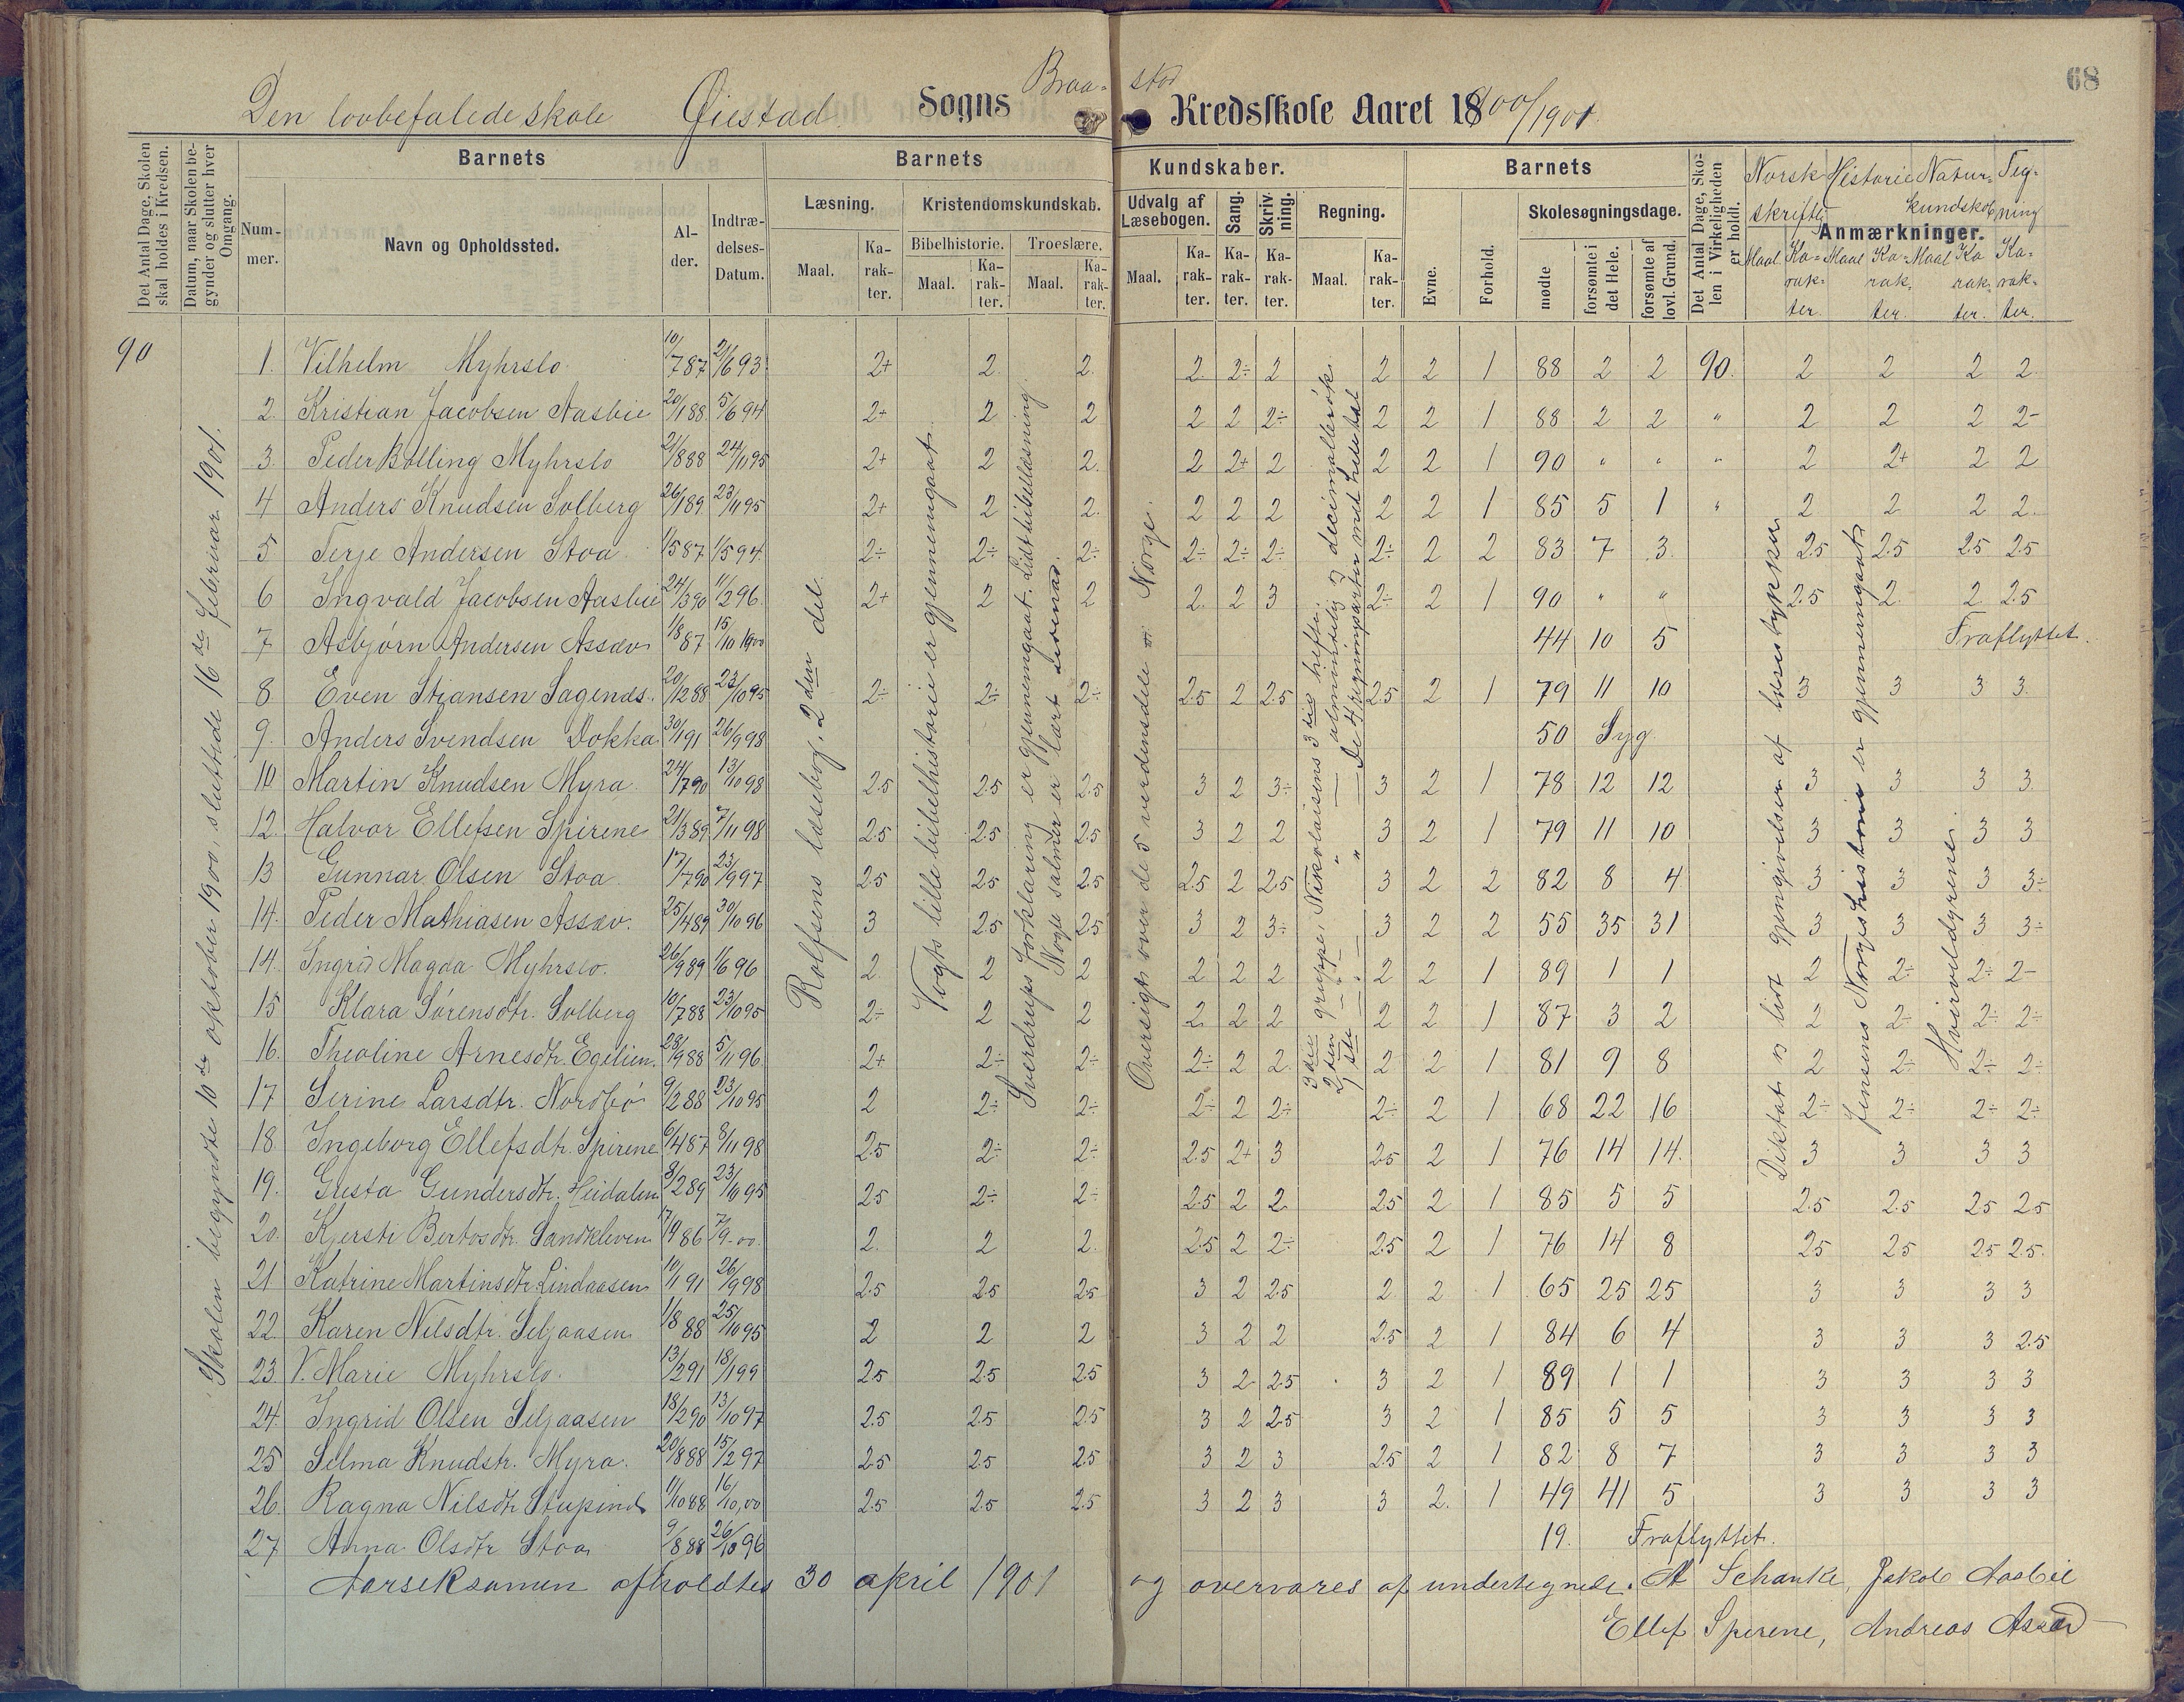 68
Den lovbefalede skole Øiestad Sogns Braa- stad Kredsskole Aaret 18900/1901.
Det Antal Dage, Skolen skal holdes i Kredsen.
Datum, naar Skolen begynder og slutter hver Omgang.
Barnets
Nummer.
Navn og Opholdssted.
Alder.
Indtrædelses-Datum.
Barnets Kundskaber.
Læsning. Maal. Karakter.
Kristendomskundskab.
Bibelhistorie. Maal. Karakter.
Troeslære. Maal. Karakter.
Udvalg af Læsebogen. Maal. Karakter.
Sang. Karakter.
Skrivning. Karakter.
Regning. Maal. Karakter.
Barnets
Evne.
Forhold.
Skolesøgningsdage.
møde
forsømte i det Hele.
forsømte af lovl. Grund.
Det Antal Dage, Skolen i Virkeligheden er holdt.
Anmærkninger.
Norsk skriftlig Maal Karakter.
Historie Maal Karakter.
Naturkundskab Maal Karakter.
Tegning Karakter.
90
Skolen begyndte 10de oktober 1900, sluttede 16de februar 1901.
Rolfsens læsebog, 2den del.
Vogts lille bibelhistorie er gjennemgaat.
Sverdrups forklaring er gjennemgaat. Lidt bibellæsning.
Nogle salmer er lært udenad.
Oversigt over de 5 verdensdele Norge.
3die gruppe, Nikolaisens 3die hefte.
2den — " — almindelig og decimalbrøk.
1ste — " — De 4 regningsarter med hele tal
Diktat og lidt gjengivelser af læsestykker
Jensens Norgeshistorie er gjennemgaaet
Hvirveldyrene.
1. Vilhelm Myhrslo. 10/7 87 21/6 93 2+ 2. 2. 2 2÷ 2 2 2 1 88 2 2 90. 2 2 2 2
2. Kristian Jacobsen Aasbie 20/1 88 5/6 94 2+ 2 2 2 2 2÷ 2 2 1 88 2 2 " 2 2 2 2-
3. Peder Bolling Myhrslo 21/8 88 24/11 95 2+ 2 2. 2 2+ 2 2 2 1 90 " " " 2 2+ 2 2
4 Anders Knudsen Solberg 26/1 89 23/11 95 2+ 2 2. 2 2 2 2 2 1 85 5 1 " 2 2 2 2.
5 Terje Andersen Stoa 1/5 87 1/5 94 2÷ 2÷ 2÷ 2÷ 2÷ 2÷ 2÷ 2 2 83 7 3 2.5 2.5 2.5 2.5
6 Ingvald Jacobsen Aasbie 24/3 90 11/2 96 2+ 2 2 2 2 3 2÷ 2 1 90 " " 2.5 2 2 2.5
7 Asbjørn Andersen Assæv 1/8 87 15/10 1900 44 10 5 Fraflyttet.
8 Even Stiansen Sagenæs. 20/12 88 23/10 95 2÷ 2÷ 2÷ 2.5 2 2.5 2.5 2 1 79 11 10 3 3 3 3
9. Anders Svendsen Dokka 30/1 91 26/9 98 50 Syg
10 Martin Knudsen Myra 24/7 90 13/10 98 2.5 2.5 2.5 3 2 3÷ 3 2 1 78 12 12 3 3 3 3
12. Halvor Ellefsen Spirene 21/3 89 7/11 98 2.5 2.5 2.5 3 2 2 3 2 1 79 11 10 3 3 3 3
13 Gunnar Olsen Stoa 17/7 90 23/9 97 2.5 2.5 2.5 2.5 2 2.5 3 2 2 82 8 4 3 3 3 3÷
14. Peder Mathiasen Assæv. 25/4 89 30/10 96 3 2.5 2.5 3 2 3÷ 3 2 2 55 35 31 3 3 3 3÷
14. Ingrid Magda Myhrslo. 26/9 89 1/6 96 2 2 2 2 2 2 2 2 1 89 1 1 2 2÷ 2÷ 2-
15 Klara Sørensdtr. Solberg 10/7 88 23/10 95 2÷ 2 2 2 2 2 2 2 1 87 3 2 2 2÷ 2÷ 2÷
16. Theoline Arnesdtr. Egelien. 28/9 88 5/11 96 2+ 2÷ 2÷ 2÷ 2 2 2 2 1 81 9 8 2 2÷ 2÷ 2÷
17 Serine Larsdtr. Nordbø 9/2 88 23/10 95 2 2÷ 2÷ 2÷ 2 2÷ 2÷ 2 1 68 22 16 2÷ 2÷ 2÷ 2÷
18 Ingeborg Ellefsdtr. Spirene 6/4 87 8/11 98 2.5 2÷ 2÷ 2.5 2+ 3 2.5 2 1 76 14 14. 3 3 3 3
19. Gusta Gundersdtr. Heidalen 8/2 89 23/10 95 2.5 2÷ 2÷ 2.5 2 2 2.5 2 1 85 5 5 2.5 2.5 2.5 2.5
20. Kjersti Bertosdtr. Sandkleven 17/9 86 7/9-00. 2. 2 2. 2.5 2 2÷ 2.5 2 1 76 14 8 2.5 2.5 2.5 2.5
21 Katrine Martinsdtr. Lindaasen 10/1 91 26/9 98 2.5 2.5 2.5 3 2 2.5 2 2 1 65 25 25 3 3 3 3
22. Karen Nilsdtr. Seljaasen 1/8 88 25/10 95 2 2 2 3 2 2 2.5 2 1 84 6 4 3 3 3 2.5
23 V. Marie Myhrslo. 13/2 91 18/1 99 2.5 2.5 2.5 3 2 2.5 3 2 1 89 1 1 3 3 3 3
24. Ingrid Olsen Seljaasen 18/2 90 13/10 97 2.5 2.5 2.5 3 2 2.5 3 2 1 85 5 5 3 3 3 3
25 Selma Knudstr. Myra. 20/8 88 15/2 97 2.5 2.5 2.5 3 2 3 2.5 2 1 82 8 7 3 3 3 3
26. Ragna Nilsdtr 11/10 88 16/10,00 2.5 2.5 2.5 3 2 3 3 2. 1 49 41 5 3 3 3 3
27 Anna Olsdtr Stoa 9/8 88 26/10 96 19. Fraflyttet.
Aarseksamen afholdtes 30 april 1901 og overvares af undertegnede. A Schanke, Jakob Aasbie
Ellef Spirene, Andreas Assæv